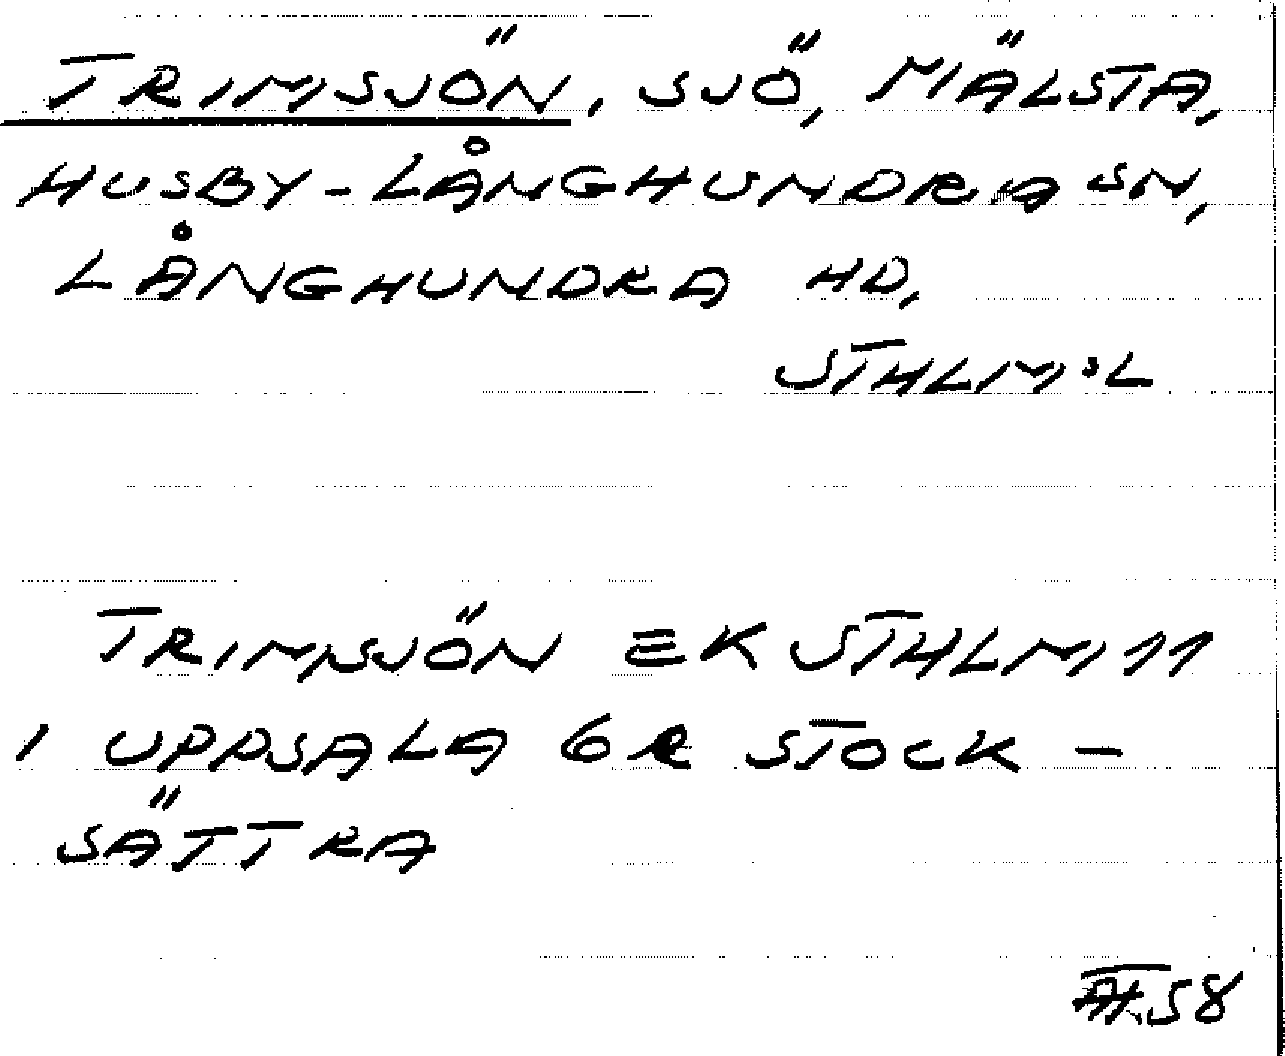 TRIMSJÖN, SJÖ, MÄLSTA,
HUSBY-LÅNGHUNDRA SN,
LÅNGHUNDRA HD,
STHLM:L
TRIMSJÖN EK STHLM 11
1 UPPSALA GR STOCK-
SÄTTRA